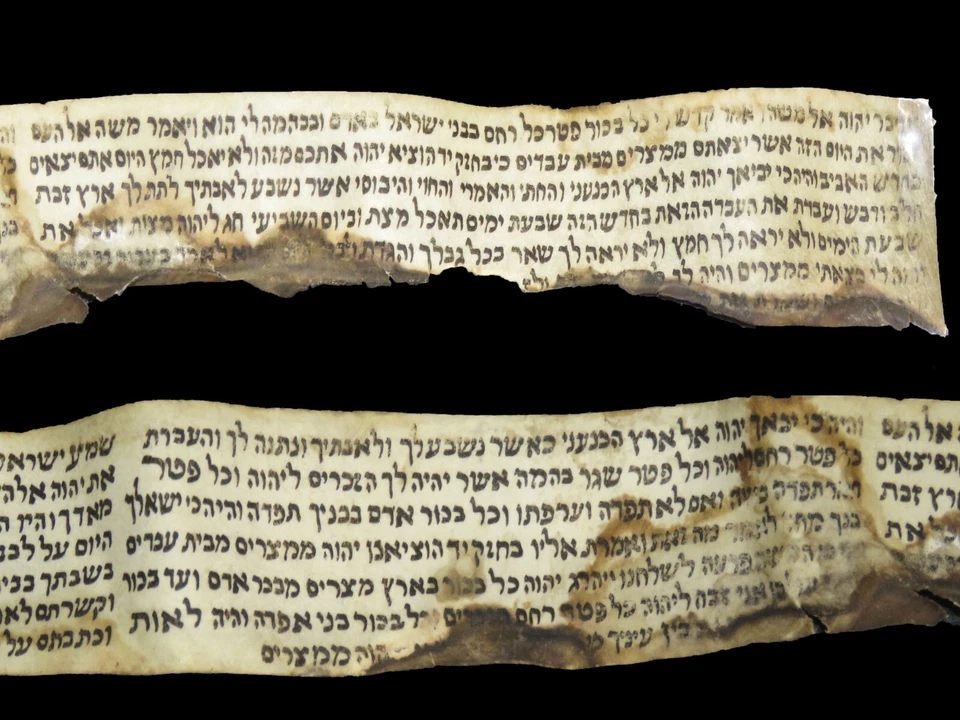 יהוה אל משה לאמר קדש לי כל בכור פטר כל רחם בבני ישראל באדם ובבהמה לי הוא ויאמר משה אל העם
את היום הזה אשר יצאתם ממצרים מבית עבדים כי בחזק יד הוציא יהוה אתכם מזה ולא יאכל חמץ היום אתם יצאים
בחדש האביב והיה כי יביאך יהוה אל ארץ הכנעני והחתי והאמרי והחוי והיבוסי אשר נשבע לאבתיך לתת לך ארץ זבת
חלב ודבש ועבדת את העבדה הזאת בחדש הזה שבעת ימים תאכל מצת וביום השביעי חג ליהוה מצות יאכל את
שבעת הימים ולא יראה לך חמץ ולא יראה לך שאר בכל גבלך והגדת
זה לי בצאתי ממצרים והיה לך
אל העם
אתם יצאים
ארץ זבת
את
והיה כי יבאך יהוה אל ארץ הכנעני כאשר נשבע לך ולאבתיך ונתנה לך והעברת
כל פטר רחם ליהוה וכל פטר שגר בהמה אשר יהיה לך הזכרים ליהוה וכל פטר
חמר תפדה בשה ואם לא תפדה וערפתו וכל בכור אדם בבניך תפדה והיה כי ישאלך
בנך מחר לאמר מה זאת ואמרת אליו בחזק יד הוציאנו יהוה ממצרים מבית עבדים
פרעה לשלחנו ויהרג יהוה כל בכור בארץ מצרים מבכר אדם ועד בכור
אני זבח ליהוה כל פטר רחם הזכרים וכל בכור בני אפדה והיה לאות
בין עיניך יהוה ממצרים
שמע ישראל
את יהוה אלה
מאדך והיו
היום על לבב
בשבתך בבי
וקשרתם לאו
וכתבתם על